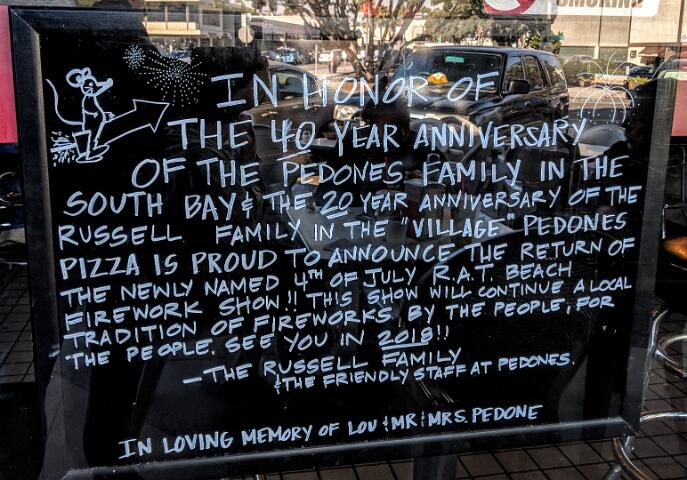 IN HONOR OF
THE 40 YEAR ANNIVERSARY
OF THE PEDONES FAMILY IN THE
SOUTH BAY & THE 20 YEAR ANNIVERSARY OF THE
RUSSELL FAMILY IN THE "VILLAGE" PEDONES
PIZZA IS PROUD TO ANNOUNCE THE RETURN OF
THE NEWLY NAMED 4TH OF JULY R.A.T. BEACH
FIREWORK SHOW!! THIS SHOW WILL CONTINUE A LOCAL
TRADITION OF FIREWORKS BY THE PEOPLE, FOR
THE PEOPLE. SEE YOU IN 2018!!
—THE RUSSELL FAMILY
& THE FRIENDLY STAFF AT PEDONES.
IN LOVING MEMORY OF LOU & MR & MRS. PEDONE